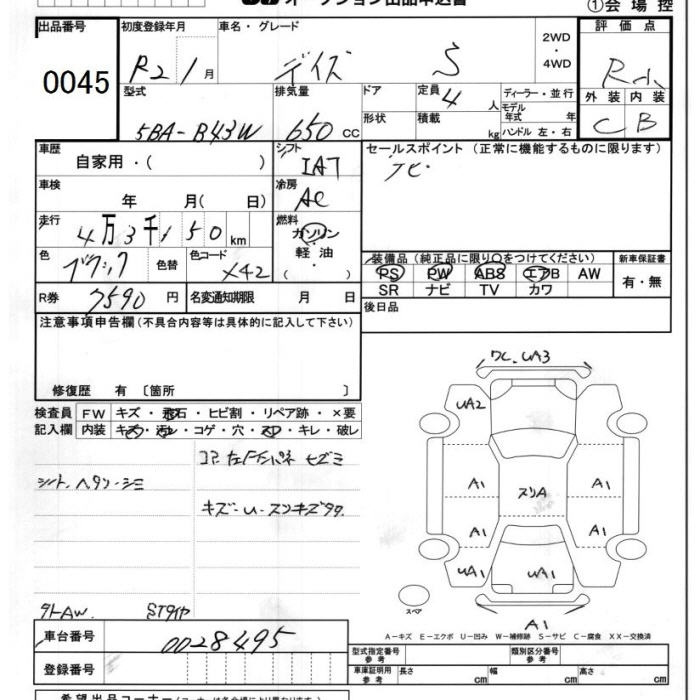 オークション出品申込書
①会場控
出品番号 0045
初度登録年月 R2 / 1月
車名・グレード デイズ S
2WD・4WD
評価点
外装 C 内装 B
型式 5BA-B43W
排気量 650 CC
ドア 形状
定員 4 人
積載 kg
ディーラー・並行
モデル年式 年
ハンドル 左・右
車歴 自家用・( )
シフト IAT
セールスポイント (正常に機能するものに限ります)
ナビ
車検 年 月( 日)
冷房 AC
走行 4万3千150km
燃料 ガソリン・軽油・( )
色 ブラック 色替 色コード X42
装備品 (純正品に限り○をつけてください)
PS PW ABS エアB AW
SR ナビ TV カワ
新車保証書
有・無
R券 7590円 名変通知期限 月 日
後日品
注意事項申告欄 (不具合内容等は具体的に記入して下さい)
修復歴 有 〔箇所 〕
検査員記入欄
FW キズ・飛石・ヒビ割・リペア跡・×要
内装 キズ・汚レ・コゲ・穴・スレ・キレ・破レ
コア左Fインパネ ヒズミ
シート、ヘタリ・シミ
キズ・U・スリキズタタ
外AW STタイヤ
ワレ、UA3
UA2
A1 スリA A1
A1 A1
UA1 UA1
スペア
A1
A-キズ E-エクボ U-凹み W-補修跡 S-サビ C-腐食 XX-交換済
車台番号 0028495
型式指定番号 参考
類別区分番号 参考
登録番号
車庫証明用 参考 長さ cm 幅 cm 高さ cm
希望出品コーナー